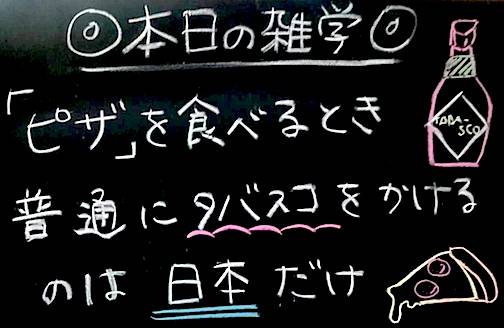 ◎本日の雑学◎
「ピザ」を食べるとき
普通にタバスコをかける
のは日本だけ
TABA-
SCO